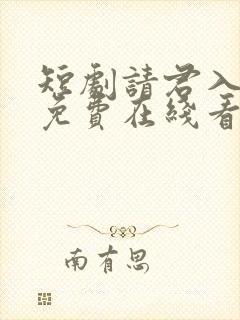 短劇請君入
免費在綫看
南有思